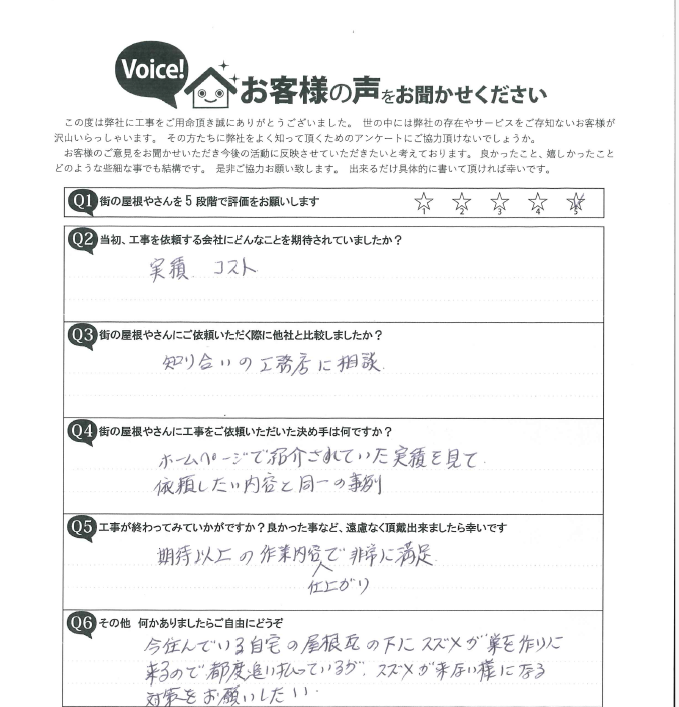 Voice!
お客様の声をお聞かせください
この度は弊社に工事をご用命頂き誠にありがとうございました。 世の中には弊社の存在やサービスをご存知ないお客様が
沢山いらっしゃいます。 その方たちに弊社をよく知って頂くためのアンケートにご協力頂けないでしょうか。
お客様のご意見をお聞かせいただき今後の活動に反映させていただきたいと考えております。 良かったこと、嬉しかったこと
どのような些細な事でも結構です。 是非ご協力お願い致します。 出来るだけ具体的に書いて頂ければ幸いです。
Q1 街の屋根やさんを5段階で評価をお願いします
1 2 3 4 5
Q2 当初、工事を依頼する会社にどんなことを期待されていましたか?
実績 コスト
Q3 街の屋根やさんにご依頼いただく際に他社と比較しましたか?
知り合いの工務店に相談
Q4 街の屋根やさんに工事をご依頼いただいた決め手は何ですか?
ホームページで紹介されていた実績を見て
依頼したい内容と同一の事例
Q5 工事が終わってみていかがですか?良かった事など、遠慮なく頂戴出来ましたら幸いです
期待以上の作業内容で非常に満足
仕上がり
Q6 その他 何かありましたらご自由にどうぞ
今住んでいる自宅の屋根瓦の下にスズメが巣を作りに
来るので都度追い払っているが、スズメが来ない様になる
対策をお願いしたい.